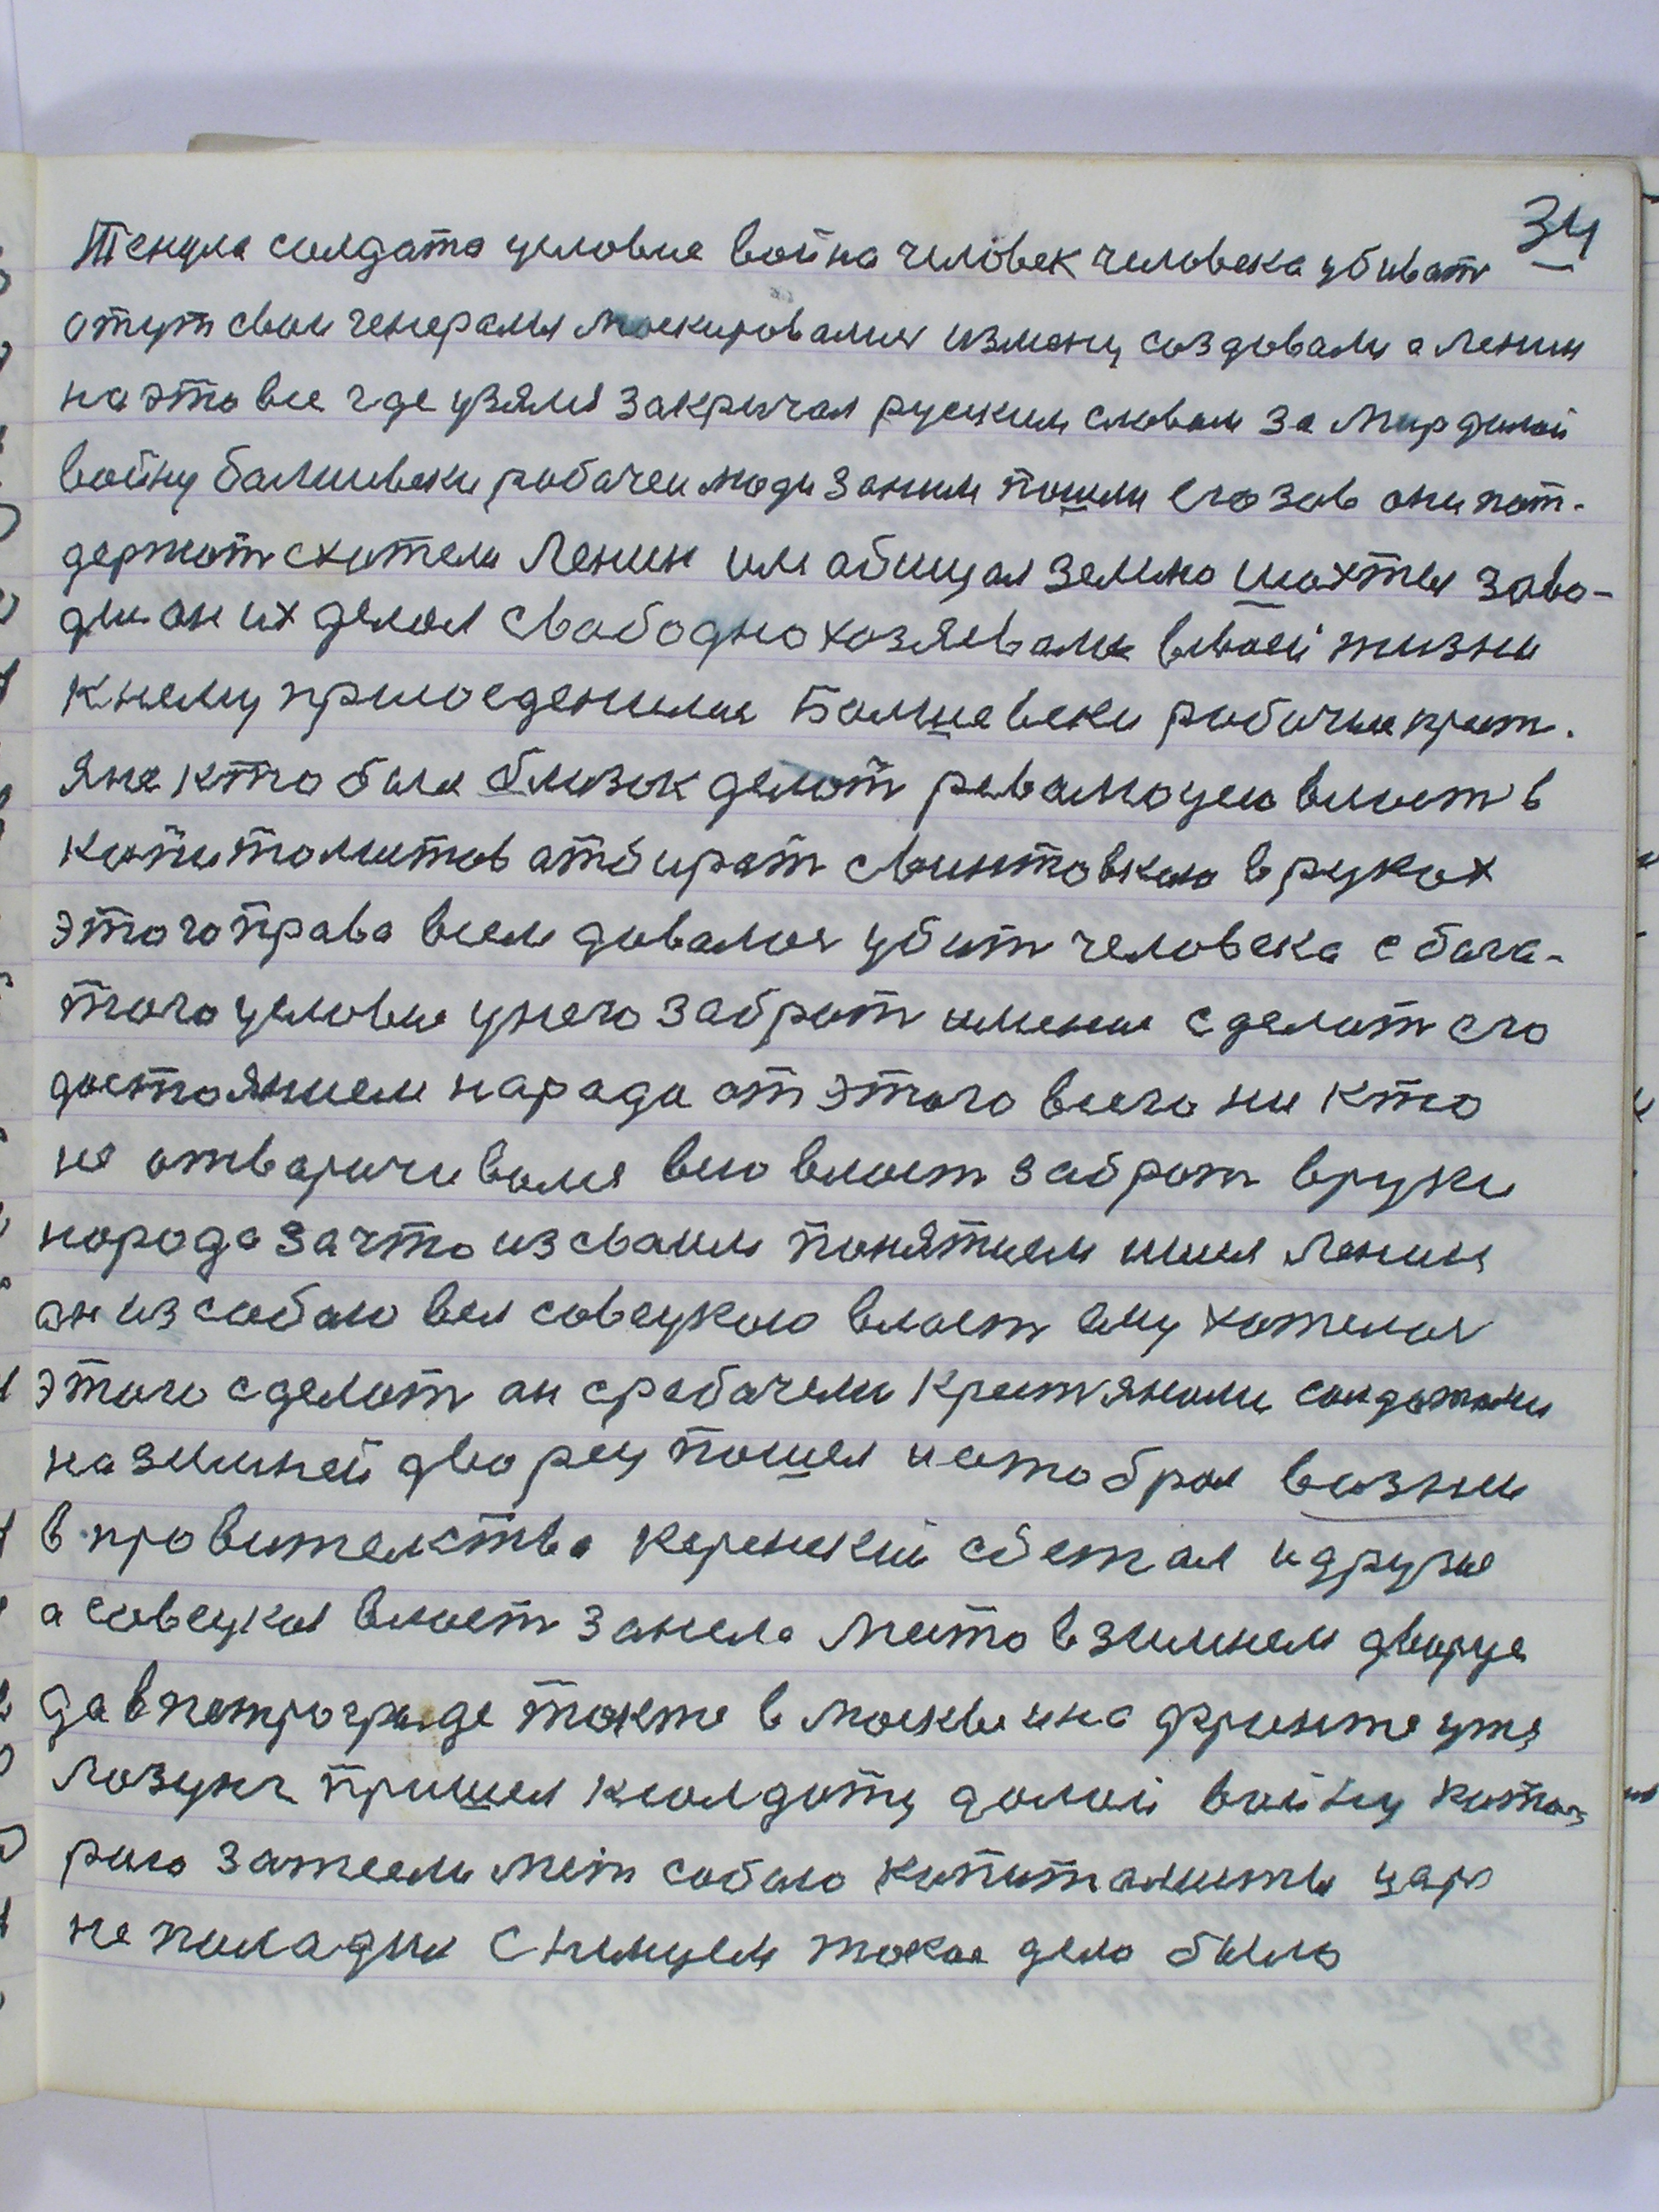 34
Тенула солдата условие война человек человека убиват
а тут свои генералы маскировалися измену создовали а Ленин
на это все где узялся закричал руским словом за мир долой
войну балшивеки рабачеи люди заним пошли его зов они пот-
держат схотели Ленин им абищал землю шахты заво-
ды он их делал свабодно хозяевами всвоей жизни
кнему присоеденилися Болшевеки рабочие крест.
яне кто был близок делат револмоцею власт в
копитолистов атбират свинтовкою вруках
этого права всем довалося убит человека с бага-
того условие унего забрат имение сделат его
достоянием народа от этого всего ни кто
не отварачивался всю власт забрат вруки
народа за что из сваим понятием шел Ленин
ан из собаю вел совецкою власт ему хотелося
этого сделат ан срабачеми крестянами солдатами
на зимней дворец пошел и атобрал вазни
в правителства Керенский сбежал и друзя
а совецкая власт занела место взимнем дворце
да впетрограде также в москве и на фронте уже
лозунг пришел ксолдату долой войну кото-
рою затеели меж собаю копиталисты цар
не поладил снимцем такое дело было